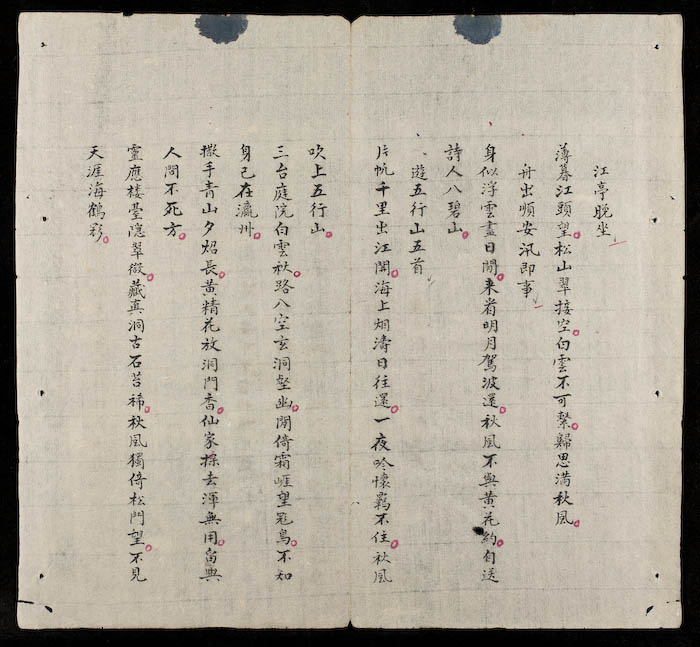 江亭晚坐
薄暮江頭望松山翠接空白雲不可繫歸思满秋風
舟出順安汛即事
身似浮雲盡日閒来省明月駕波還秋風不與黃花約自送
詩人八碧山
遊五行山五首
片帆千里出江関海上烟濤日往還一夜吟懷羁不住秋風
吹上五行山
三台庭院白雲秋路八空玄洞壑幽閒倚霜崕望冠鳥不知
身已在瀛州
撒手青山夕炤長黃精花放洞門香仙家採去渾無用留與
人間不死方
靈應楼臺隠翠微藏真洞古石苔稀秋風獨倚松門望不見
天涯海鶴彩